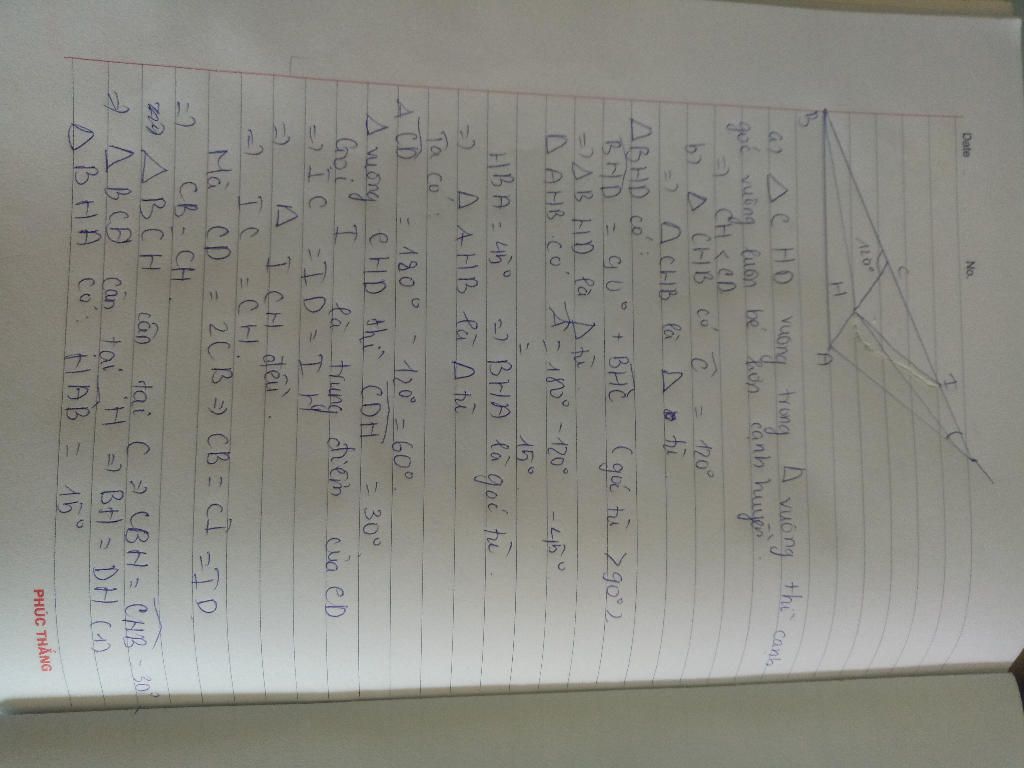 Date
No.
B
C
120°
H
A
I
a, Δ CHD vuông trong Δ vuông thì cạnh
góc vuông luôn bé hơn cạnh huyền.
=) CH < CD
b, Δ CHB có C = 120°
=) Δ CHB là Δ tù
Δ BHD có:
BHD = 90° + BHC (góc tù > 90°)
=) Δ BHD là Δ tù
Δ AHB có A = 180° - 120° - 45°
= 15°
HBA = 45° =) BHA là góc tù.
=) Δ AHB là Δ tù
Ta có:
ACD = 180° - 120° = 60°
Δ vuông CHD thì CDH = 30°
Gọi I là trung điểm của CD
=) IC = ID = IH
=) Δ ICH đều.
=) IC = CH.
Mà CD = 2CB =) CB = CI = ID
=) CB = CH
Δ BCH cân tại C =) CBH = CHB = 30°
=) Δ BCH cân tại H =) BH = DH (1)
Δ BHA có: HAB = 15°
PHÚC THẮNG